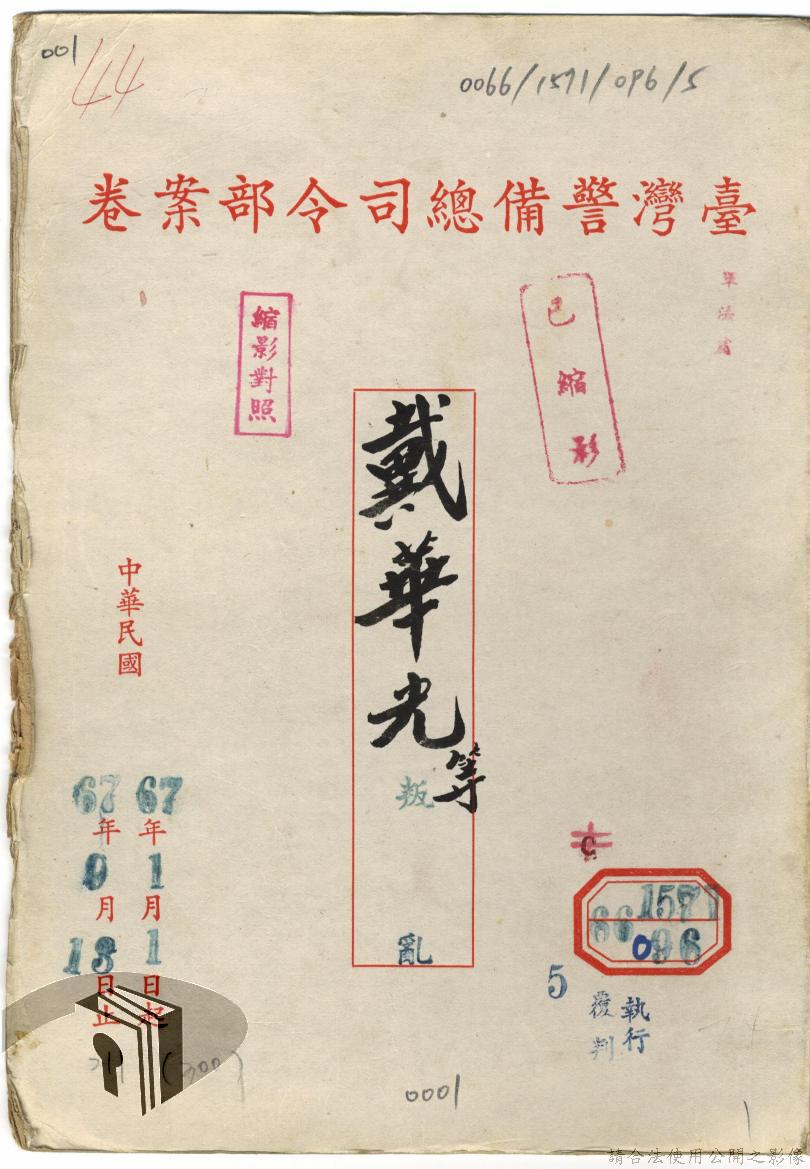 001
44
0066/1571/096/5
臺灣警備總司令部案卷
軍法處
已縮影
縮影對照
戴華光等
叛亂
中華民國
67年1月1日起
67年9月13日止
1571
66 096
5
執行
覆判
(300)
0001
請合法使用公開之影像